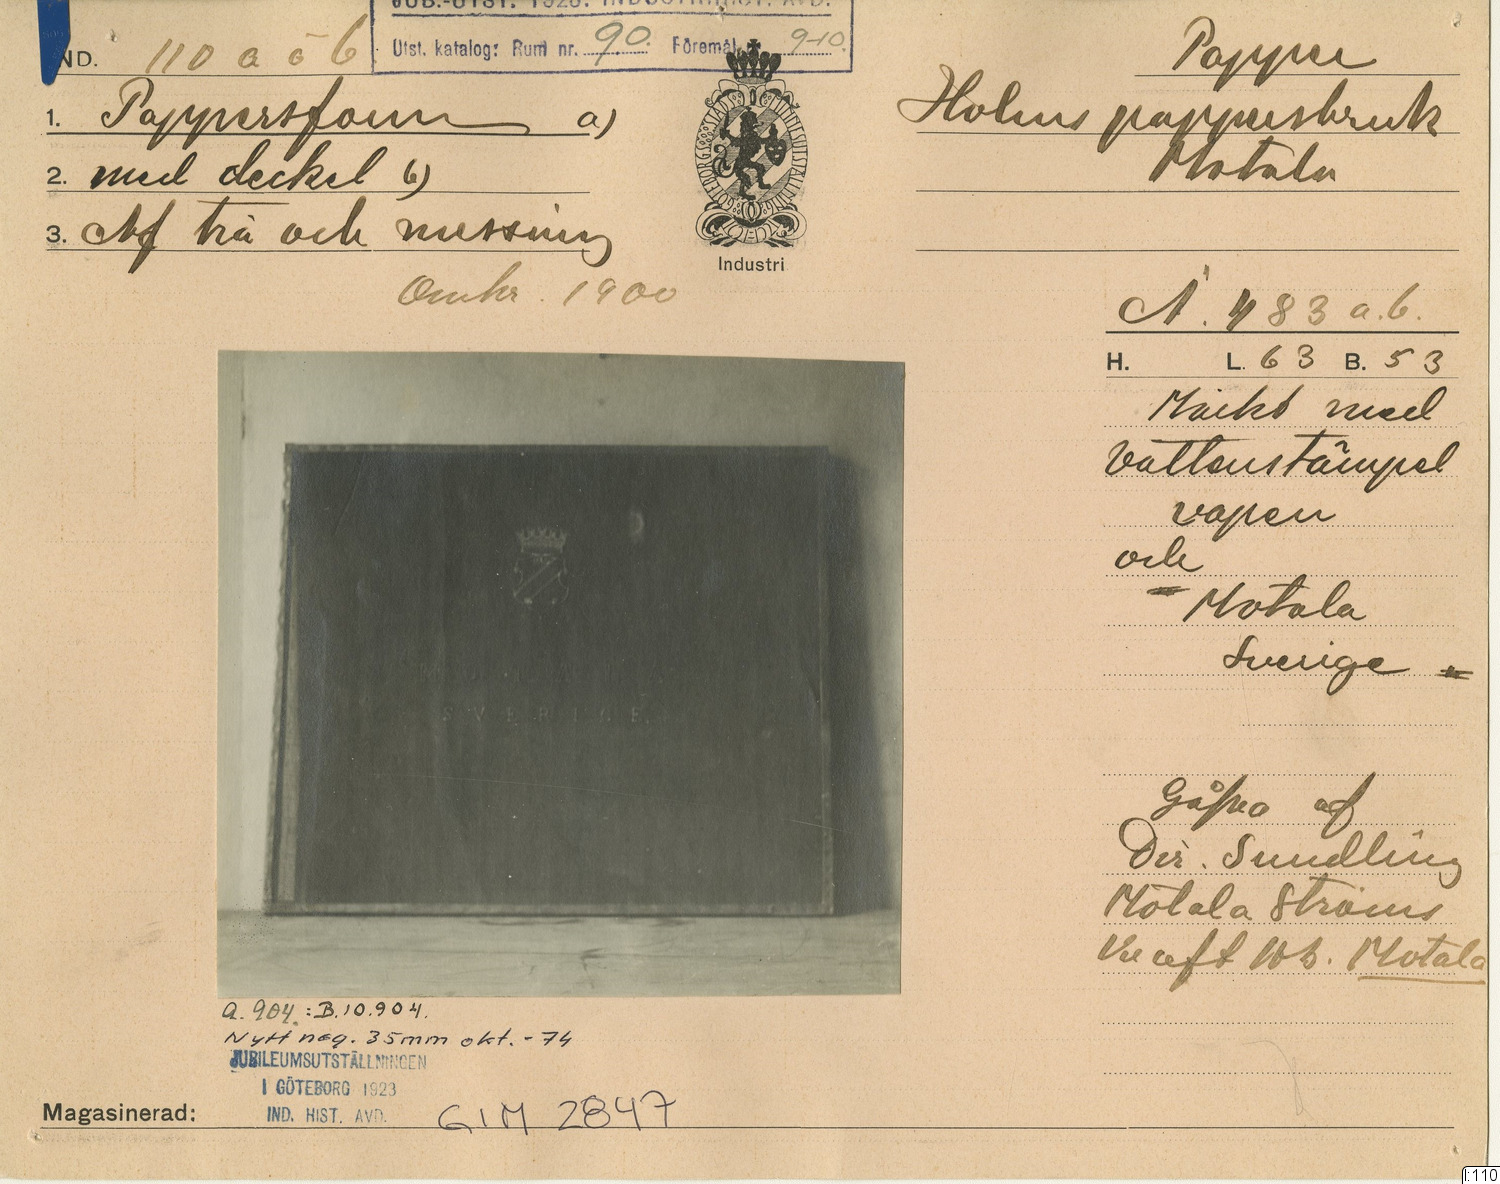 JUB.-UTST. 1923. INDUSTRIHIST. AVD.
Utst. katalog: Rum nr. 90. Föremål 9-10.
IND. 110 a o b
1. Pappersform a)
2. med deckel b)
3. Af trä och messing
Omkr. 1900
GÖTEBORGS STADS MINNESUTSTÄLLNING
Industri
Papper
Holms pappersbruk
Motala
N. 483 a.b.
H. L. 63 B. 53
Märkt med
Vattenstämpel
vapen
och
"Motala
Sverige"
Gåfva af
Dir. Sundling
Motala Ströms
Kraft AB. Motala
SVERIGE
a. 904 : B.10.904.
Nytt neg. 35mm okt. - 74
JUBILEUMSUTSTÄLLNINGEN
I GÖTEBORG 1923
IND. HIST. AVD.
Magasinerad: GIM 2847
I:110